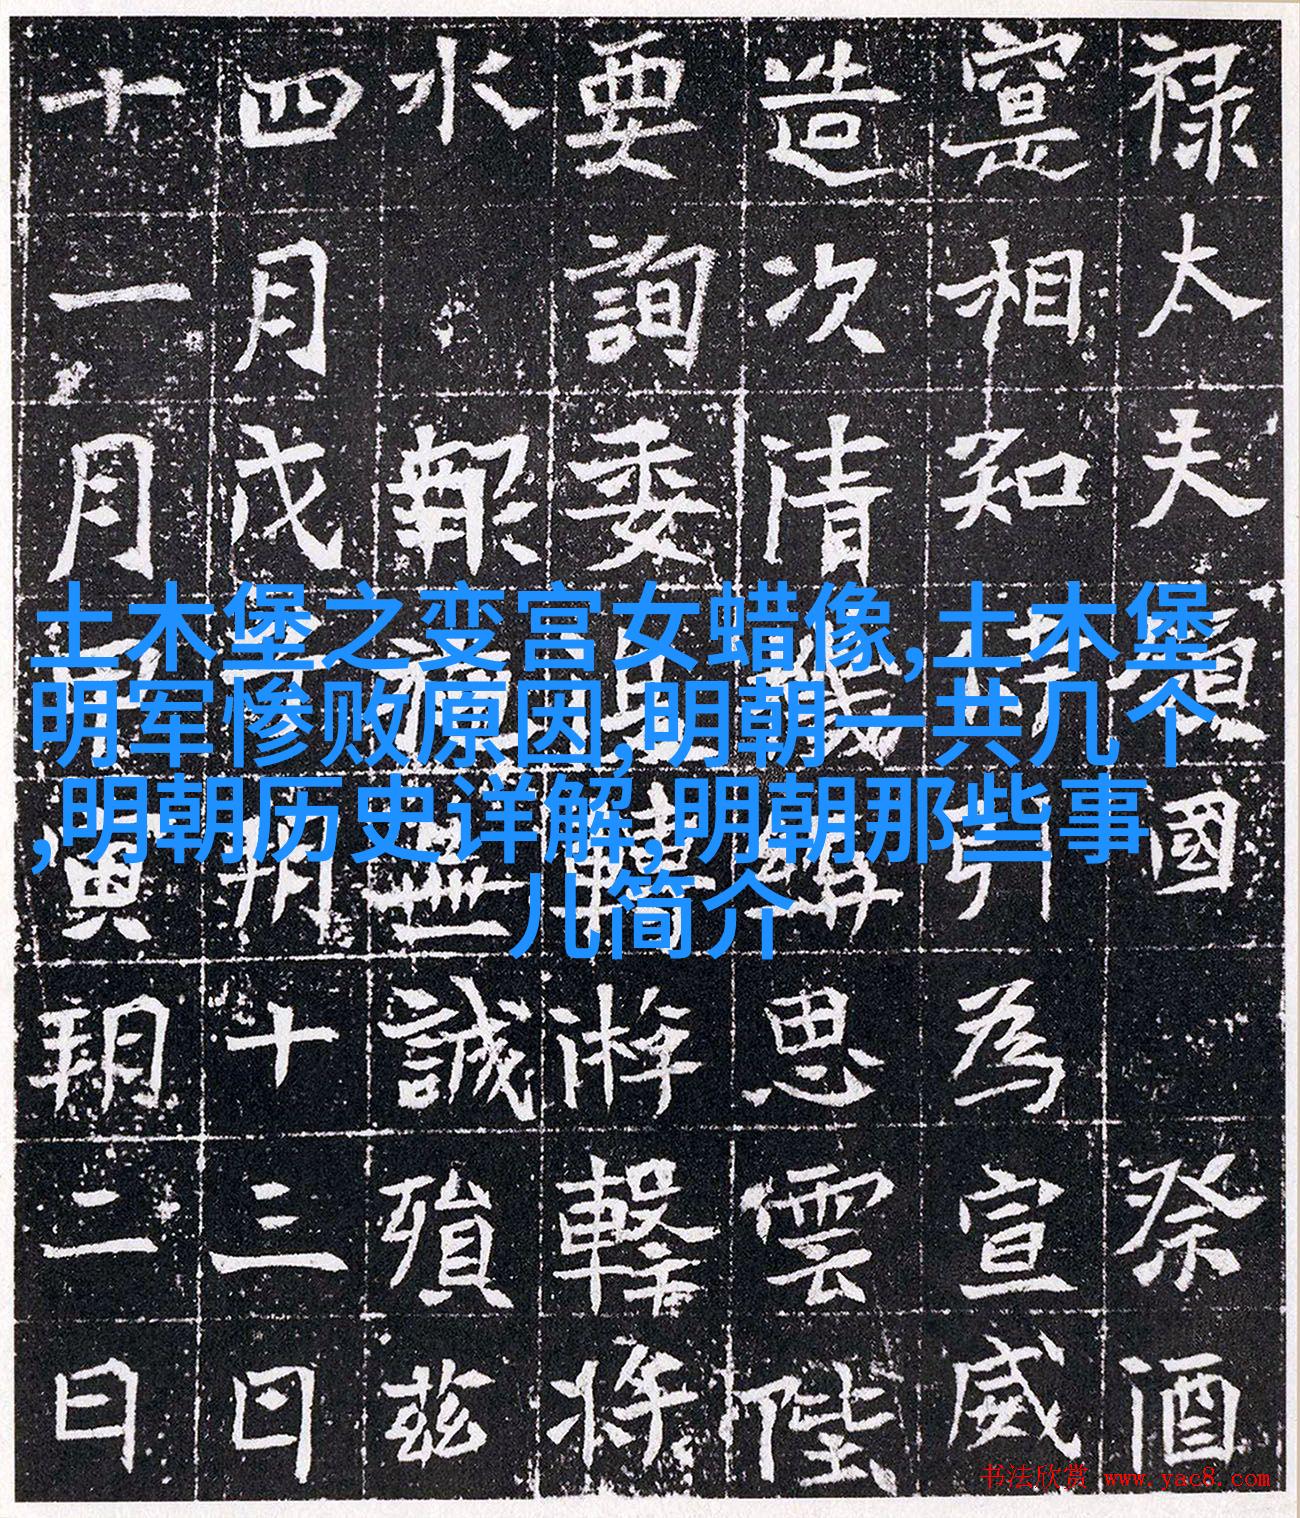 禄太夫國祭酒
寔相知引為宣威
造次清講思雲陛
要詢委游擊將
水報無誠殞茲
四月戊朔十三日
十一月寅朔二日
土木堡之变宫女蜡像,土木堡
明军惨败原因,明朝一共几个
,明朝历史详解,明朝那些事
儿简介
书法欣赏 www.yac8.com